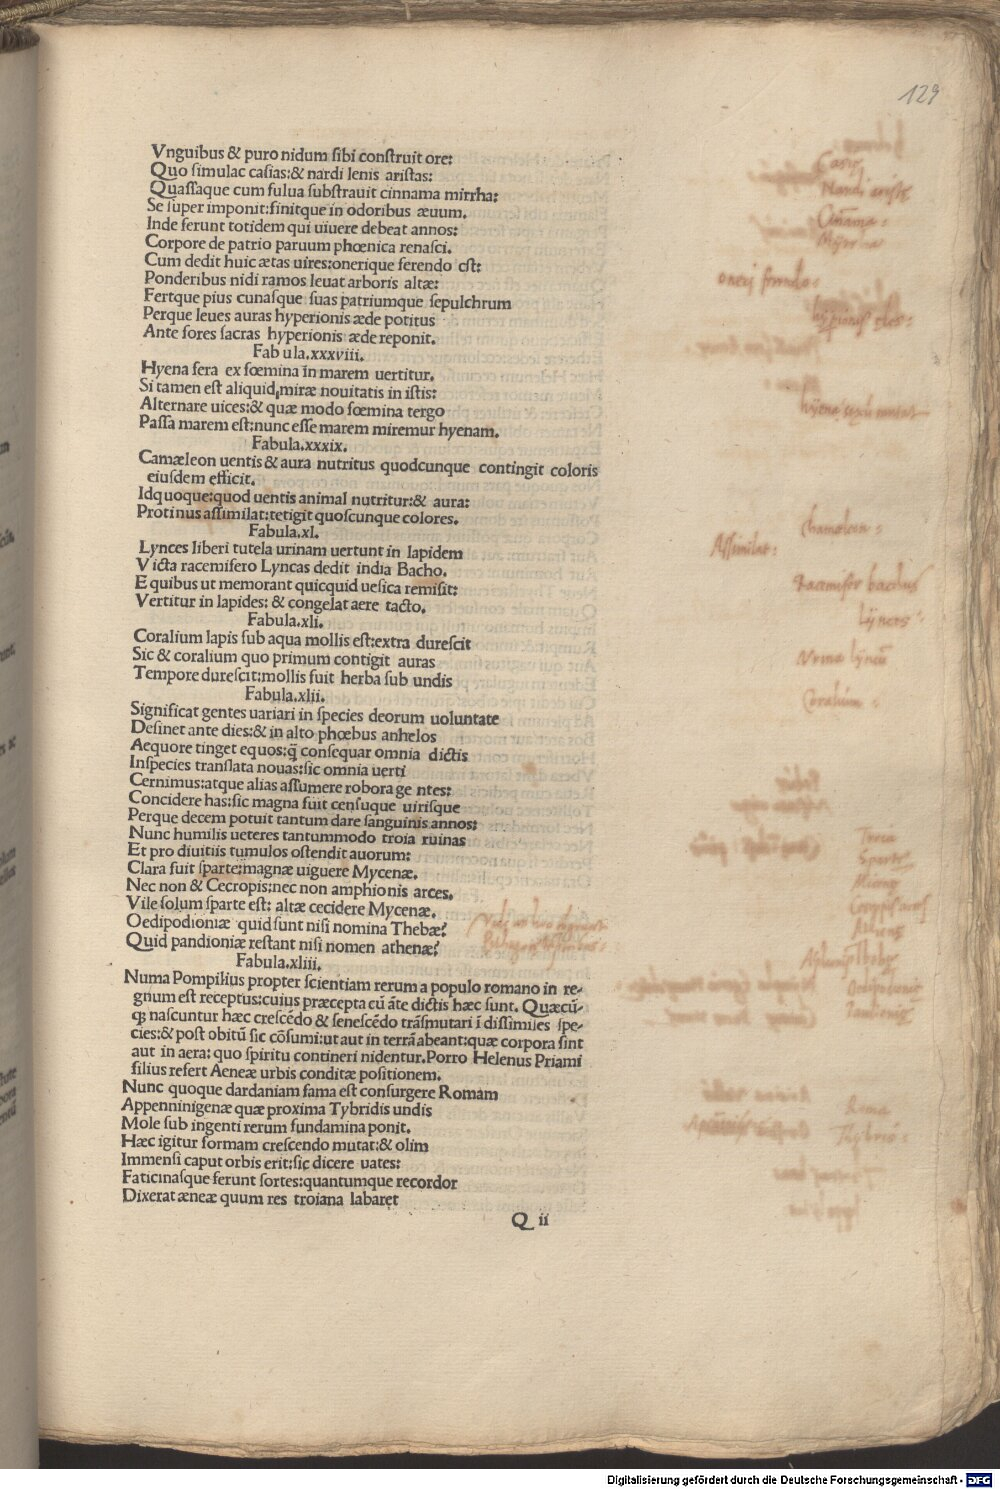 129
Vnguibus & puro nidum sibi construit ore:
Quo simulac casias:& nardi lenis aristas:
Quassaque cum fulua substrauit cinnama mirrha:
Se super imponit:finitque in odoribus æuum.
Inde ferunt totidem qui uiuere debeat annos:
Corpore de patrio paruum phœnica renasci.
Cum dedit huic ætas uires:onerique ferendo est:
Ponderibus nidi ramos leuat arboris altæ:
Fertque pius cunasque suas patriumque sepulchrum
Perque leues auras hyperionis æde potitus
Ante fores sacras hyperionis æde reponit.
Fabula.xxxviii.
Hyena fera ex fœmina in marem uertitur.
Si tamen est aliquid,miræ nouitatis in istis:
Alternare uices:& quæ modo fœmina tergo
Passa marem est:nunc esse marem miremur hyenam.
Fabula.xxxix.
Camæleon uentis & aura nutritus quodcunque contingit coloris
eiusdem efficit.
Idquoque:quod uentis animal nutritur:& aura:
Protinus assimilat:tetigit quoscunque colores.
Fabula.xl.
Lynces liberi tutela urinam uertunt in lapidem
Victa racemifero Lyncas dedit india Bacho.
E quibus ut memorant quicquid uesica remisit:
Vertitur in lapides: & congelat aere tacto.
Fabula.xli.
Coralium lapis sub aqua mollis est:extra durescit
Sic & coralium quo primum contigit auras
Tempore durescit:mollis fuit herba sub undis
Fabula.xlii.
Significat gentes uariari in species deorum uoluntate
Desinet ante dies:& in alto phœbus anhelos
Aequore tinget equos:q̃ consequar omnia dictis
Inspecies translata nouas:sic omnia uerti
Cernimus:atque alias assumere robora gentes:
Concidere has:sic magna fuit censuque uirisque
Perque decem potuit tantum dare sanguinis annos:
Nunc humilis ueteres tantummodo troia ruinas
Et pro diuitiis tumulos ostendit auorum:
Clara fuit sparte:magnæ uiguere Mycenæ.
Nec non & Cecropis:nec non amphionis arces.
Vile solum sparte est: altæ cecidere Mycenæ.
Oedipodioniæ quid sunt nisi nomina Thebæ?
Quid pandioniæ restant nisi nomen athenæ?
Fabula.xliii.
Numa Pompilius propter scientiam rerum a populo romano in re-
gnum est receptus:cuius præcepta cū āte dictis hæc sunt. Quæcū-
q; nascuntur hæc crescēdo & senescēdo trāsmutari ī dissimiles spe-
cies:& post obitū sic cōsumi:ut aut in terrā abeant:quæ corpora sint
aut in aera: quo spiritu contineri nidentur.Porro Helenus Priami
filius refert Aeneæ urbis conditæ positionem.
Nunc quoque dardaniam fama est consurgere Romam
Appenninigenæ quæ proxima Tybridis undis
Mole sub ingenti rerum fundamina ponit.
Hæc igitur formam crescendo mutat:& olim
Immensi caput orbis erit:sic dicere uates:
Faticinasque ferunt sortes:quantumque recordor
Dixerat æneæ quum res troiana labaret
Q ii
Casia
Nardi aristę
Cinnama:
Myrrha
onerj ferendo:
hyena sexū mutat
Chamæleon:
Assimilat:
Racemifer bacchus
Lynces:
Vrina lyncū
Coralium:
Sparte
Athenę
Roma
Digitalisierung gefördert durch die Deutsche Forschungsgemeinschaft - DFG